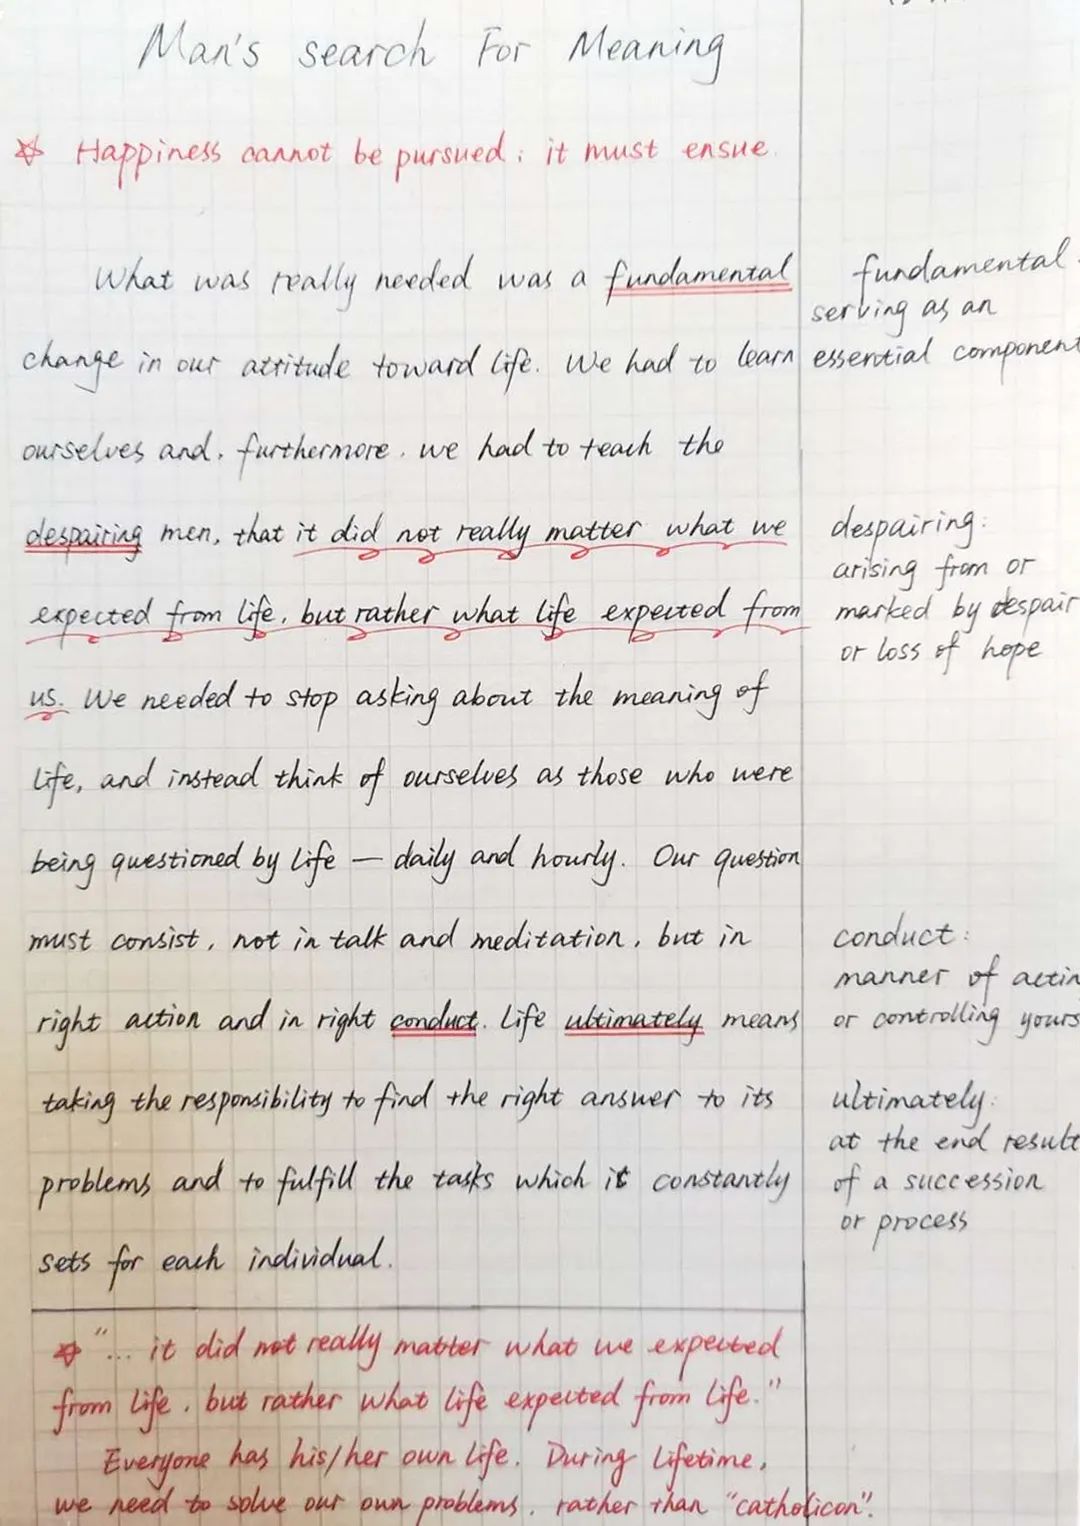 Man's search For Meaning
☆ Happiness cannot be pursued; it must ensue.
What was really needed was a fundamental
change in our attitude toward life. We had to learn
ourselves and, furthermore, we had to teach the
despairing men, that it did not really matter what we
expected from life, but rather what life expected from
us. We needed to stop asking about the meaning of
life, and instead think of ourselves as those who were
being questioned by life — daily and hourly. Our question
must consist, not in talk and meditation, but in
right action and in right conduct. Life ultimately means
taking the responsibility to find the right answer to its
problems and to fulfill the tasks which it constantly
sets for each individual.
fundamental:
serving as an
essential component
despairing:
arising from or
marked by despair
or loss of hope
conduct:
manner of actin
or controlling yours
ultimately:
at the end result
of a succession
or process
☆ "... it did not really matter what we expected
from life, but rather what life expected from life."
Everyone has his/her own life. During lifetime,
we need to solve our own problems, rather than "catholicon".